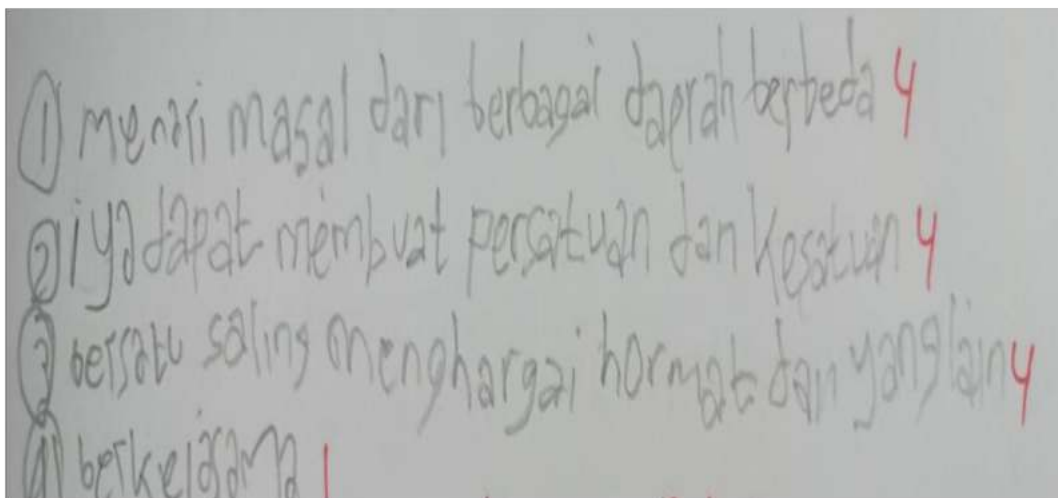 ① menari masal dari berbagai daerah berbeda 4
② iya dapat membuat persatuan dan kesatuan 4
③ bersatu saling menghargai hormat dan yang lain 4
④ berkejasama 1